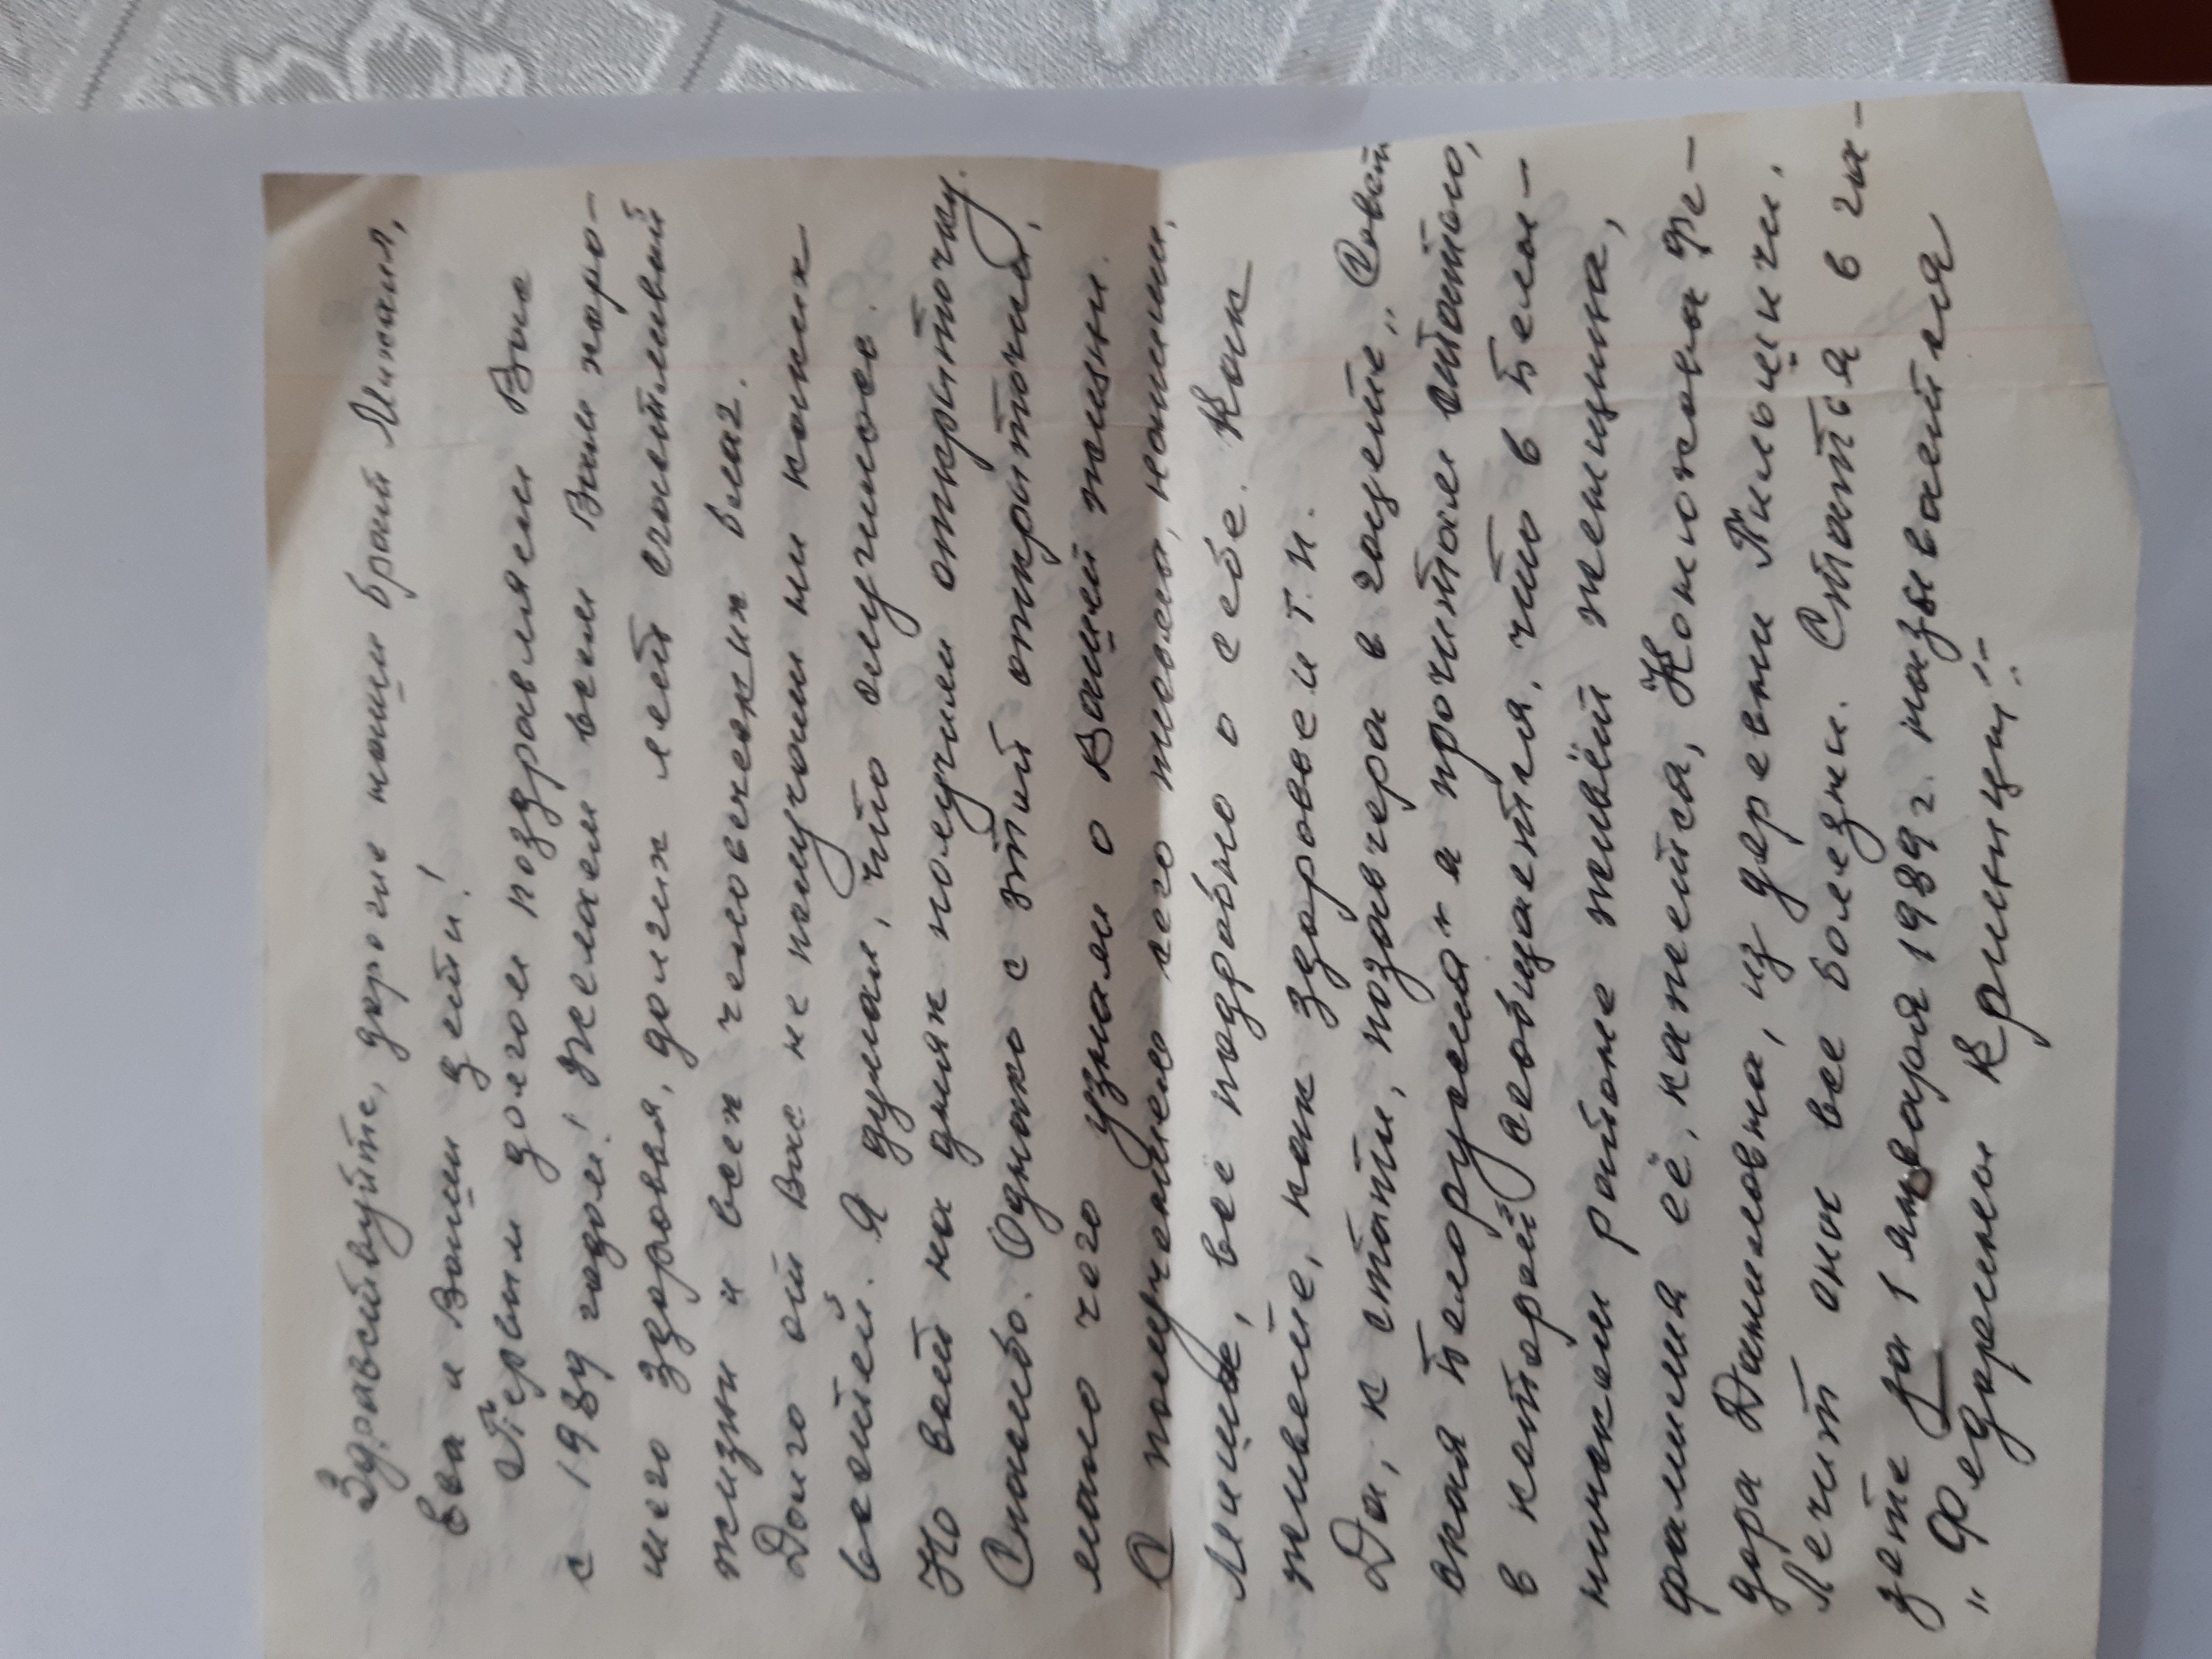 Здравствуйте, дорогие наши брат Михаил,
Ева и Ваши дети!
Первым долгом поздравляем Вас
с 1989 годом! Желаем всем Вам хоро-
шего здоровья, долгих лет счастливой
жизни и всех человеческих благ.
Долго от Вас не получали ни каких
вестей. Я думал, что случилось.
Но вот на днях получили открыточку.
Спасибо. Однако с этой открыточки,
мало чего узнали о Вашей жизни.
С получением сего письма, напиши,
Миша, всё подробно о себе. Как
живете, как здоровье и т.п.
Да, к стати, позавчера в газете „Совет
ская Белоруссия" я прочитал статью,
в которой сообщается, что в Белы-
ничском районе живёт женщина,
фамилия её, кажется, Конюхова Фе-
дора Даниловна, из деревни Пильшичи.
Лечит она все болезни. Статья в га-
зете за 1 января 1989 г. называется
„Федорины Криницы".